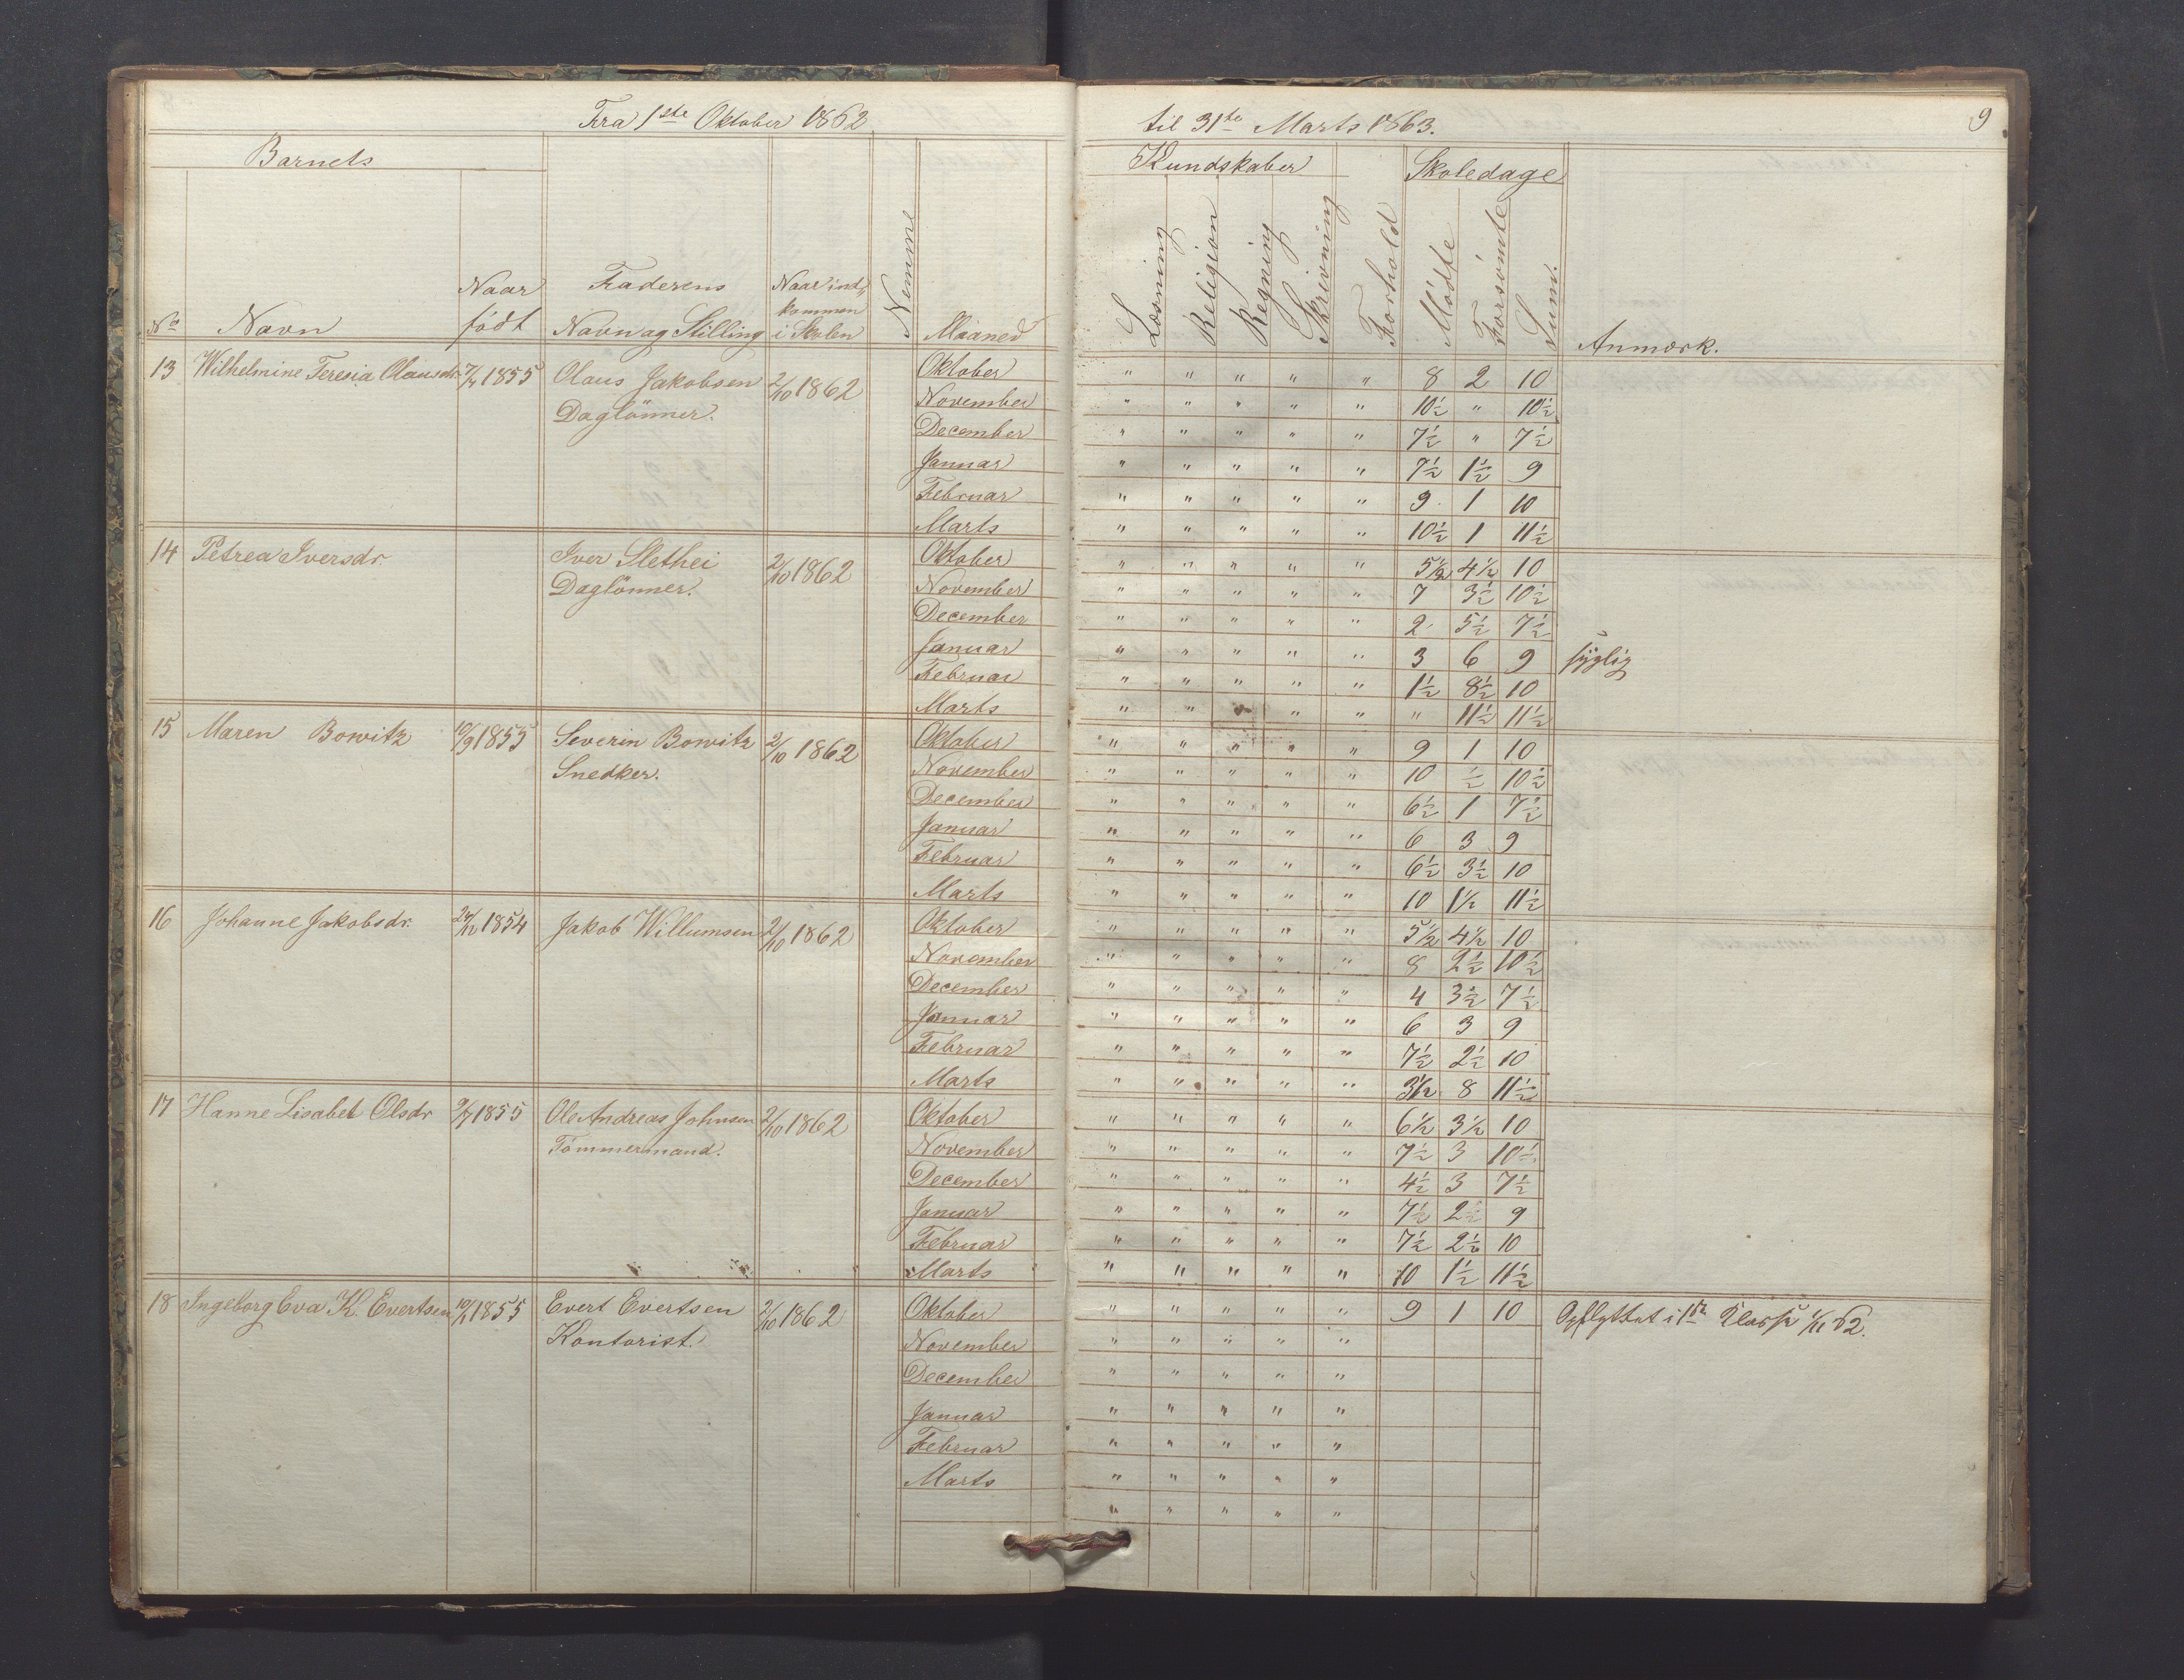 Fra 1ste Oktober 1862 til 31te Marts 1863. 9
Barnets Kundskaber Skoledage
No Navn Naar født Faderens Navn og Stilling Naar ind„kommen i Skolen Nemme Maaned Læsning Religion Regning Skrivning Forhold Mødte Forsömte Sum. Anmærk.
13 Wilhelmine Teresia Olausdr. 1855 Olaus Jakobsen 2/10 1862 Oktober " " " " " 8 2 10
Daglönner. November " " " " " 10½ " 10½
December " " " " " 7½ " 7½
Januar " " " " " 7½ 1½ 9
Februar " " " " " 9 1 10
Marts " " " " " 10½ 1 11½
14 Petrea Iversdr. Iver Slethei 2/10 1862 Oktober " " " " " 5½ 4½ 10
Daglönner. November " " " " " 7 3½ 10½
December " " " " " 2 5½ 7½
Januar " " " " " 3 6 9 syglig
Februar " " " " " 1½ 8½ 10
Marts " " " " " " 11½ 11½
15 Maren Bowitz 10/9 1855 Severin Bowitz 2/10 1862 Oktober " " " " " 9 1 10
Snedker. November " " " " " 10 ½ 10½
December " " " " " 6½ 1 7½
Januar " " " " " 6 3 9
Februar " " " " " 6½ 3½ 10
Marts " " " " " 10 1½ 11½
16 Johanne Jakobsdr. 24/12 1854 Jakob Willumsen 2/10 1862 Oktober " " " " " 5½ 4½ 10
November " " " " " 8 2½ 10½
December " " " " " 4 3½ 7½
Januar " " " " " 6 3 9
Februar " " " " " 7½ 2½ 10
Marts " " " " " 3½ 8 11½
17 Hanne Lisabet Olsdr 9/7 1855 Ole Andreas Johnsen 2/10 1862 Oktober " " " " " 6½ 3½ 10
Tömmermand. November " " " " " 7½ 3 10½
December " " " " " 4½ 3 7½
Januar " " " " " 7½ 2½ 9
Februar " " " " " 7½ 2½ 10
Marts " " " " " 10 1½ 11½
18 Ingeborg Eva K. Evertsen 1855 Evert Evertsen 2/10 1862 Oktober " " " " " 9 1 10 Opflyttet i 1ste Klasse 1/11 62.
Kontorist. November " " " " "
December " " " " "
Januar " " " " "
Februar " " " " "
Marts " " " " "
" " " " "